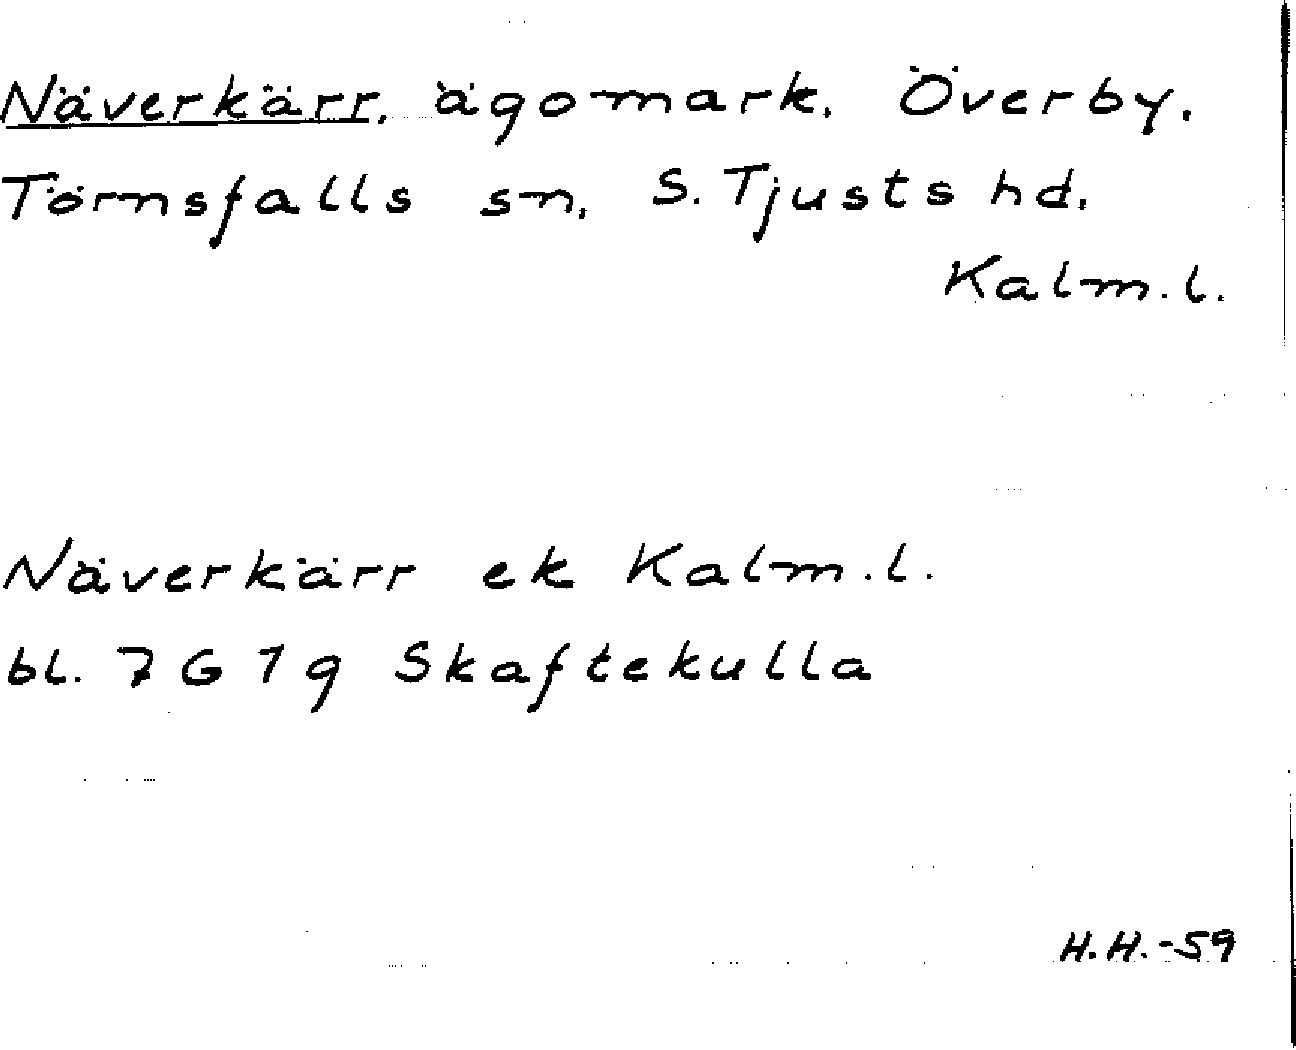 Näverkärr, ägomark, Överby,
Törnsfalls sn, S. Tjusts hd,
Kalm.l.
Näverkärr ek Kalm.l.
bl. 7G1g Skaftekulla
H.H.-59